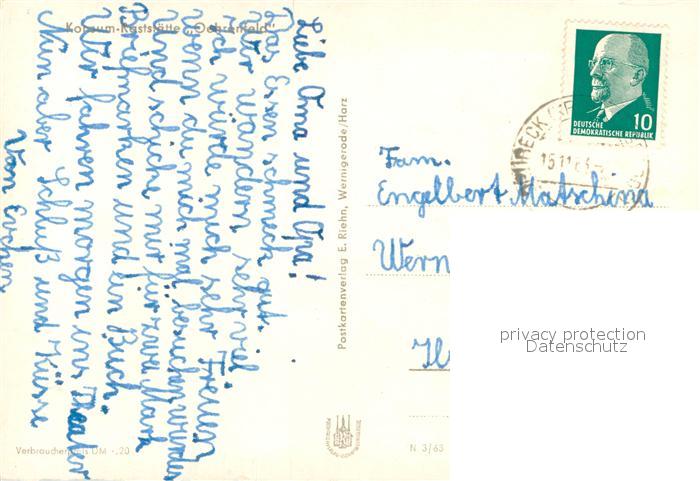 Konsum-Raststätte „Oehrenfeld"
Liebe Oma und Opa!
Das Essen schmeck gut.
Wir wandern sehr viel
ich würde mich sehr Freuen
wenn du mich mal besuchen würden
Und schicke mir für zwei Mark
Briefmarken und ein Buch
Wir fahren morgen ins Theater
Nun aber Schluß und Küsse
Vom
Verbraucherpreis DM -,20
Postkartenverlag E. Riehn, Wernigerode/Harz
N 3/63
DEUTSCHE
DEMOKRATISCHE REPUBLIK
10
Fam.
Engelbert Matschina
Wern
privacy protection
Datenschutz